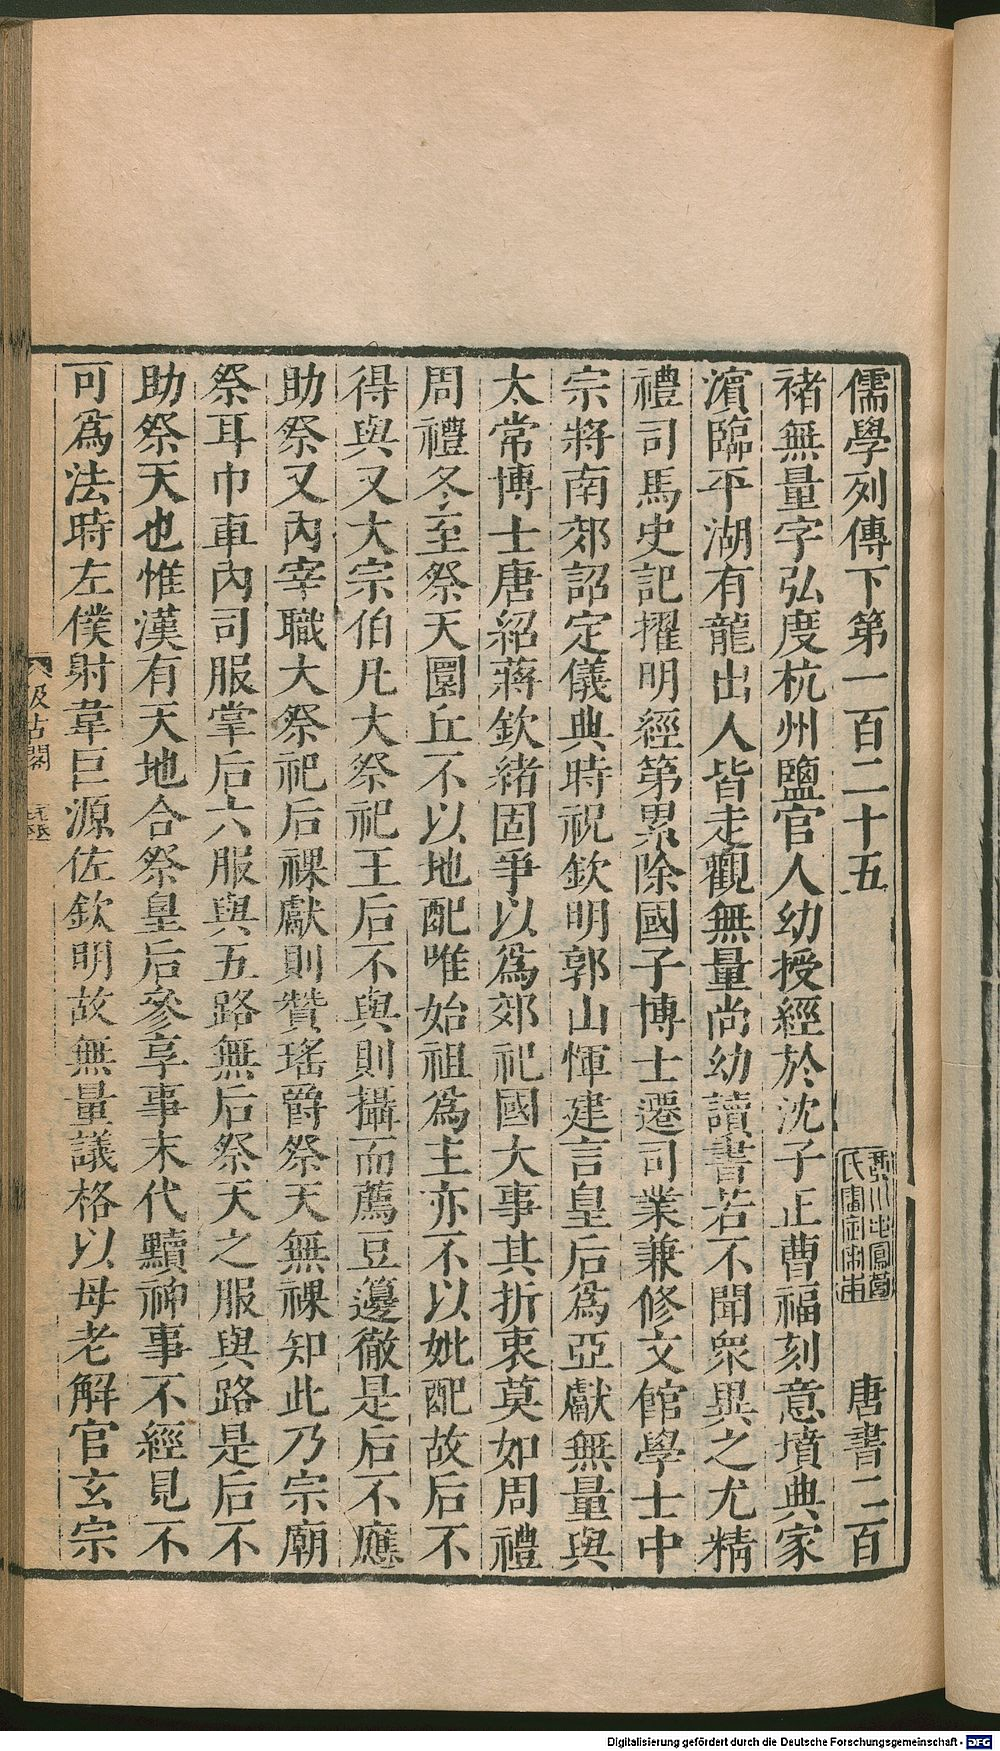 儒學列傳下第一百二十五 唐書二百
褚無量字弘度杭州鹽官人幼授經於沈子正曹福刻意墳典家
濱臨平湖有龍出人皆走觀無量尚幼讀書若不聞眾異之尤精
禮司馬史記擢明經第累除國子博士遷司業兼修文館學士中
宗將南郊詔定儀典時祝欽明郭山惲建言皇后為亞獻無量與
太常博士唐紹蔣欽緒固爭以為郊祀國大事其折衷莫如周禮
周禮冬至祭天圜丘不以地配唯始祖為主亦不以妣配故后不
得與又大宗伯凡大祭祀王后不與則攝而薦豆籩徹是后不應
助祭又內宰職大祭祀后祼獻則贊瑤爵祭天無祼知此乃宗廟
祭耳巾車內司服掌后六服與五路無后祭天之服與路是后不
助祭天也惟漢有天地合祭皇后參享事末代黷神事不經見不
可為法時左僕射韋巨源佐欽明故無量議格以母老解官玄宗
汲古閣
Digitalisierung gefördert durch die Deutsche Forschungsgemeinschaft - DFG